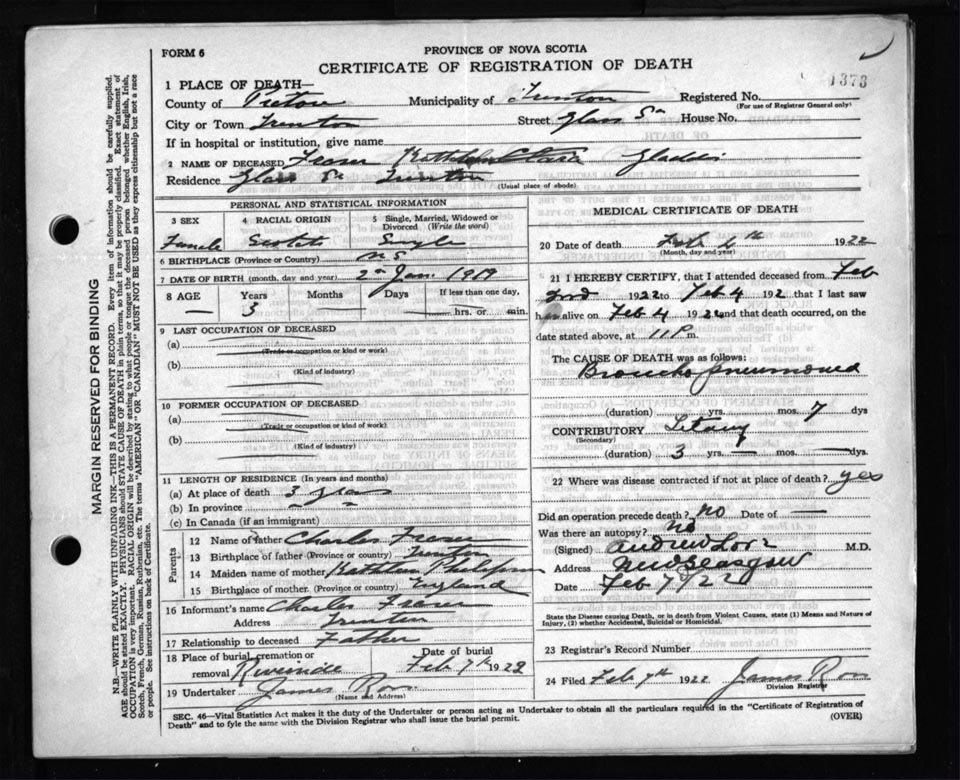 FORM 6
PROVINCE OF NOVA SCOTIA
CERTIFICATE OF REGISTRATION OF DEATH
1373
1 PLACE OF DEATH—
County of Pictou Municipality of Trenton Registered No.
(For use of Registrar General only)
City or Town Trenton Street Glass St House No.
If in hospital or institution, give name
2 NAME OF DECEASED Fraser Kathleen Clara Gladdis
Residence Glass St Trenton
(Usual place of abode)
PERSONAL AND STATISTICAL INFORMATION
3 SEX 4 RACIAL ORIGIN 5 Single, Married, Widowed or Divorced (Write the word)
Female Scotch Single
6 BIRTHPLACE (Province or Country) N S
7 DATE OF BIRTH (month, day and year) 2nd Jan 1919
8 AGE Years Months Days If less than one day,
— 3 hrs. or min.
9 LAST OCCUPATION OF DECEASED
(a)
(Trade or occupation or kind or work)
(b)
(Kind of industry)
10 FORMER OCCUPATION OF DECEASED
(a)
(Trade or occupation or kind or work)
(b)
(Kind of industry)
11 LENGTH OF RESIDENCE (In years and months)
(a) At place of death 3 years
(b) In province " "
(c) In Canada (if an immigrant)
Parents
12 Name of father Charles Fraser
13 Birthplace of father (Province or country) Trenton
14 Maiden name of mother Kathleen
15 Birthplace of mother (Province or country) England
16 Informant's name Charles Fraser
Address Trenton
17 Relationship to deceased Father
18 Place of burial, cremation or removal Riverside Date of burial Feb 7th 1922
19 Undertaker James Ross
(Name and Address)
MEDICAL CERTIFICATE OF DEATH
20 Date of death Feb 4th 1922
(Month, day and year)
21 I HEREBY CERTIFY, that I attended deceased from Feb
3rd 1922 to Feb 4 192, that I last saw
h alive on Feb 4 1922 and that death occurred, on the
date stated above, at 11 P m.
The CAUSE OF DEATH was as follows:
Broncho pneumonia
(duration) yrs. mos. 7 dys
CONTRIBUTORY Tetany
(Secondary)
(duration) 3 yrs. — mos. — dys
22 Where was disease contracted if not at place of death? yes
Did an operation precede death? no Date of —
Was there an autopsy? no
(Signed) Andrew M.D.
Address New Glasgow
Date Feb 7/22
State the Disease causing Death, or in death from Violent Causes, state (1) Means and Nature of
Injury, (2) whether Accidental, Suicidal or Homicidal.
23 Registrar's Record Number
24 Filed Feb 7th 1922 James Ross
Division Registrar
SEC. 46—Vital Statistics Act makes it the duty of the Undertaker or person acting as Undertaker to obtain all the particulars required in the "Certificate of Registration of
Death" and to fyle the same with the Division Registrar who shall issue the burial permit.
(OVER)
MARGIN RESERVED FOR BINDING
N.B.—WRITE PLAINLY WITH UNFADING INK—THIS IS A PERMANENT RECORD. Every item of information should be carefully supplied.
AGE should be stated EXACTLY. PHYSICIANS should STATE CAUSE OF DEATH in plain terms, so that it may be properly classified. Exact statement of
OCCUPATION is very important. RACIAL ORIGIN will be described by stating to what people or tongue the deceased person belonged whether English, Irish,
Scotch, French, German, Russian, Ruthenian, etc. The terms "AMERICAN" OR "CANADIAN" MUST NOT BE USED as they express citizenship but not a race
or people. See instructions on back of Certificate.